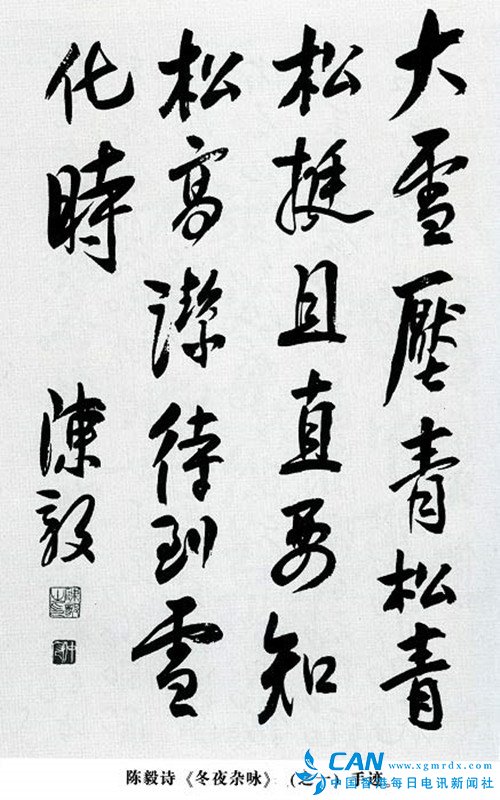 大雪壓青松青
松挺且直要知
松高潔待到雪
化時
陳毅
陈毅诗《冬夜杂咏》(之一)手迹。
CAN www.xgmrdx.com
中国香港每日电讯新闻社